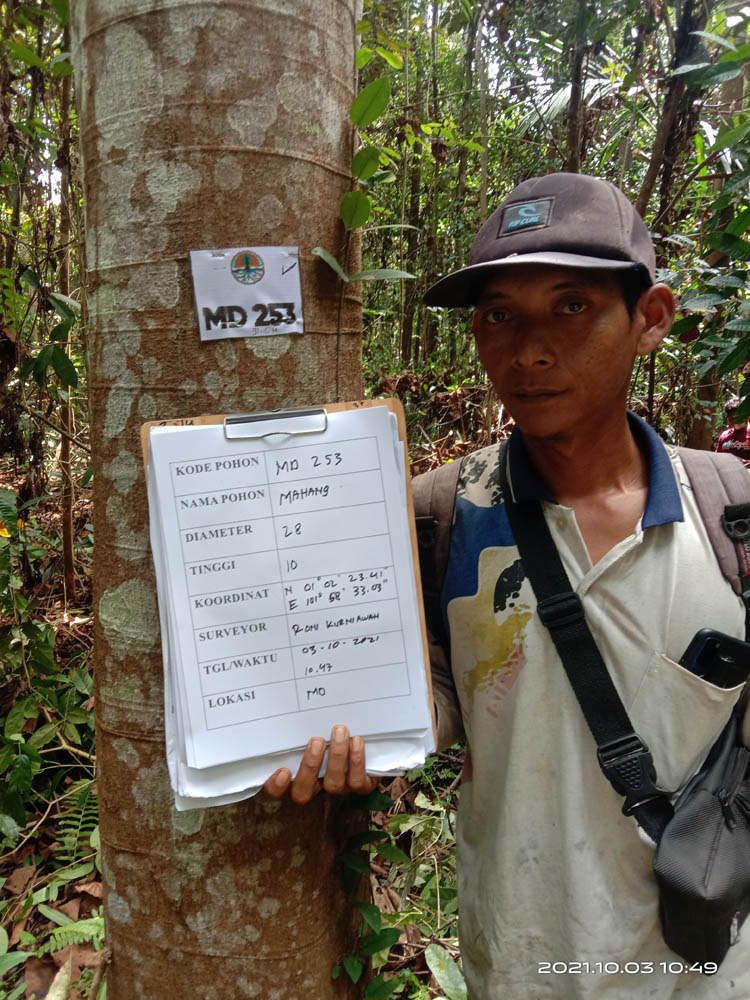 RIP CURL
MD 253
KODE POHON MD 253
NAMA POHON MAHANG
DIAMETER 28
TINGGI 10
KOORDINAT N 01° 02' 23.41"
E 101° 58' 33.03"
SURVEYOR RONI KURNIAWAH
TGL/WAKTU 03-10-2021
10.47
LOKASI MD
2021.10.03 10:49